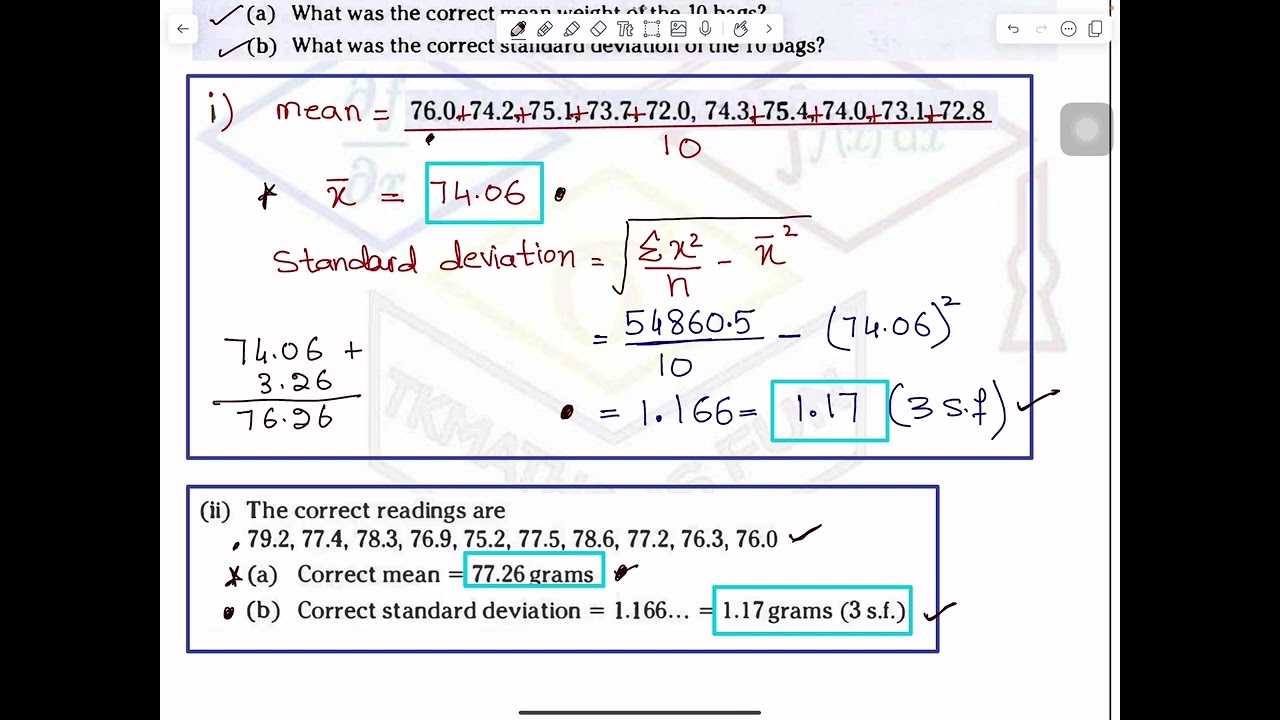 (a) What was the correct mean weight of the 10 bags?
(b) What was the correct standard deviation of the 10 bags?
i) mean = 76.0+74.2+75.1+73.7+72.0, 74.3+75.4+74.0+73.1+72.8
10
x̄ = 74.06
Standard deviation = √ Σx²/n - x̄²
= 54860.5/10 - (74.06)²
74.06 +
3.26
76.26
= 1.166 = 1.17 (3 s.f)
TKMATHS IS FUN
(ii) The correct readings are
79.2, 77.4, 78.3, 76.9, 75.2, 77.5, 78.6, 77.2, 76.3, 76.0
(a) Correct mean = 77.26 grams
(b) Correct standard deviation = 1.166... = 1.17 grams (3 s.f.)